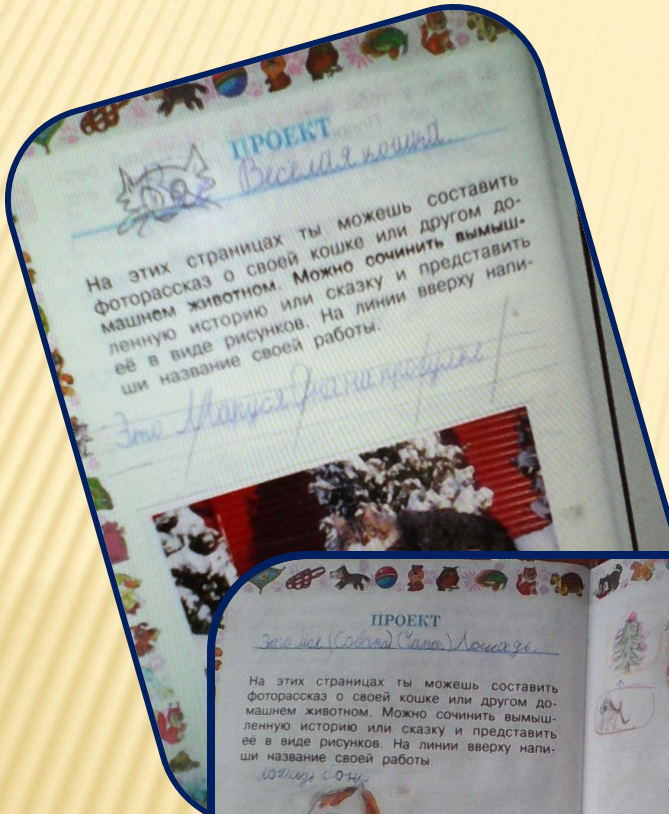 ПРОЕКТ
Веселая кошка
На этих страницах ты можешь составить
фоторассказ о своей кошке или другом до-
машнем животном. Можно сочинить вымыш-
ленную историю или сказку и представить
её в виде рисунков. На линии вверху напи-
ши название своей работы.
Это Маруся Она на прогулке
ПРОЕКТ
Это моя (Собака) Лошадь.
На этих страницах ты можешь составить
фоторассказ о своей кошке или другом до-
машнем животном. Можно сочинить вымыш-
ленную историю или сказку и представить
её в виде рисунков. На линии вверху напи-
ши название своей работы.
лошадь